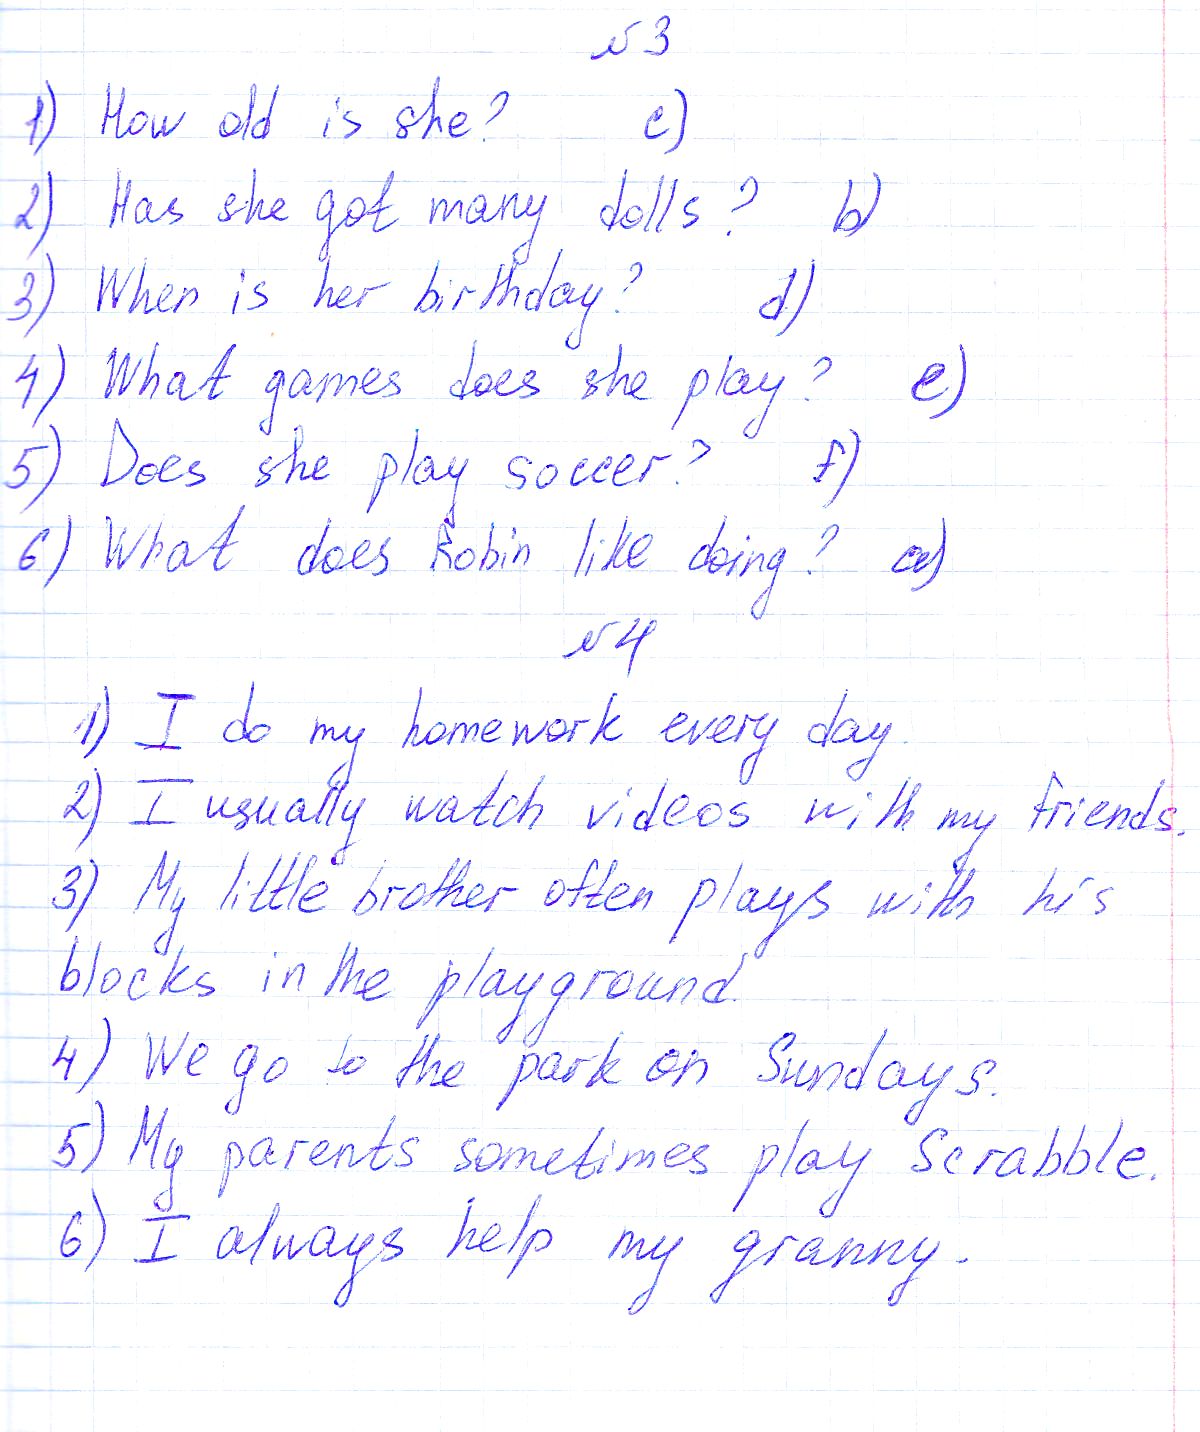 №3
1) How old is she? c)
2) Has she got many dolls? b)
3) When is her birthday? d)
4) What games does she play? e)
5) Does she play soccer? f)
6) What does Robin like doing? a)
№4
1) I do my homework every day.
2) I usually watch videos with my friends.
3) My little brother often plays with his
blocks in the playground.
4) We go to the park on Sundays.
5) My parents sometimes play Scrabble.
6) I always help my granny.